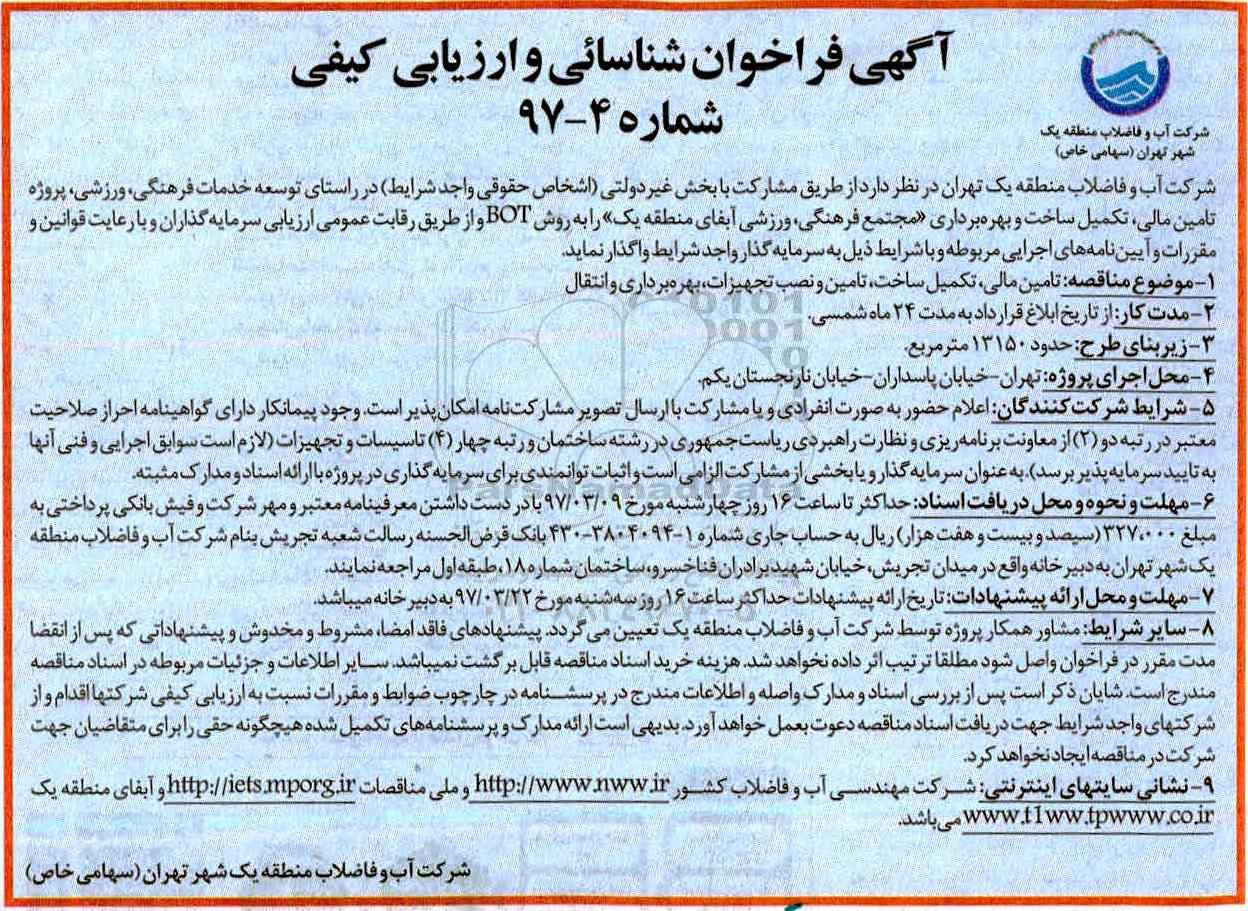 آگهی فراخوان شناسائی و ارزیابی کیفی
شماره ۴-۹۷
شرکت آب و فاضلاب منطقه یک
شهر تهران (سهامی خاص)
شرکت آب و فاضلاب منطقه یک تهران در نظر دارد از طریق مشارکت با بخش غیردولتی (اشخاص حقوقی واجد شرایط) در راستای توسعه خدمات فرهنگی، ورزشی، پروژه
تامین مالی، تکمیل ساخت و بهره‌برداری «مجتمع فرهنگی، ورزشی آبفای منطقه یک» را به روش BOT و از طریق رقابت عمومی ارزیابی سرمایه‌گذاران و با رعایت قوانین و
مقررات و آیین‌نامه‌های اجرایی مربوطه و با شرایط ذیل به سرمایه‌گذار واجد شرایط واگذار نماید.
۱- موضوع مناقصه: تامین مالی، تکمیل ساخت، تامین و نصب تجهیزات، بهره‌برداری و انتقال
۲- مدت کار: از تاریخ ابلاغ قرارداد به مدت ۲۴ ماه شمسی.
۳- زیربنای طرح: حدود ۱۳۱۵۰ مترمربع.
۴- محل اجرای پروژه: تهران- خیابان پاسداران- خیابان نارنجستان یکم.
۵- شرایط شرکت‌کنندگان: اعلام حضور به صورت انفرادی و یا مشارکت با ارسال تصویر مشارکت‌نامه امکان‌پذیر است. وجود پیمانکار دارای گواهینامه احراز صلاحیت
معتبر در رتبه دو (۲) از معاونت برنامه‌ریزی و نظارت راهبردی ریاست‌جمهوری در رشته ساختمان و رتبه چهار (۴) تاسیسات و تجهیزات (لازم است سوابق اجرایی و فنی آنها
به تایید سرمایه‌پذیر برسد). به عنوان سرمایه‌گذار و یا بخشی از مشارکت الزامی است و اثبات توانمندی برای سرمایه‌گذاری در پروژه با ارائه اسناد و مدارک مثبته.
۶- مهلت و نحوه و محل دریافت اسناد: حداکثر تا ساعت ۱۶ روز چهارشنبه مورخ ۹۷/۰۳/۰۹ با در دست داشتن معرفینامه معتبر و مهر شرکت و فیش بانکی پرداختی به
مبلغ ۳۲۷،۰۰۰ (سیصد و بیست و هفت هزار) ریال به حساب جاری شماره ۱-۳۸۰۴۰۹۴-۴۳۰ بانک قرض‌الحسنه رسالت شعبه تجریش بنام شرکت آب و فاضلاب منطقه
یک شهر تهران به دبیرخانه واقع در میدان تجریش، خیابان شهید برادران فناخسرو، ساختمان شماره ۱۸، طبقه اول مراجعه نمایند.
۷- مهلت و محل ارائه پیشنهادات: تاریخ ارائه پیشنهادات حداکثر ساعت ۱۶ روز سه‌شنبه مورخ ۹۷/۰۳/۲۲ به دبیرخانه میباشد.
۸- سایر شرایط: مشاور همکار پروژه توسط شرکت آب و فاضلاب منطقه یک تعیین می‌گردد. پیشنهادهای فاقد امضا، مشروط و مخدوش و پیشنهاداتی که پس از انقضا
مدت مقرر در فراخوان واصل شود مطلقا ترتیب اثر داده نخواهد شد. هزینه خرید اسناد مناقصه قابل برگشت نمیباشد. سایر اطلاعات و جزئیات مربوطه در اسناد مناقصه
مندرج است. شایان ذکر است پس از بررسی اسناد و مدارک واصله و اطلاعات مندرج در پرسشنامه در چارچوب ضوابط و مقررات نسبت به ارزیابی کیفی شرکتها اقدام و از
شرکتهای واجد شرایط جهت دریافت اسناد مناقصه دعوت بعمل خواهد آورد. بدیهی است ارائه مدارک و پرسشنامه‌های تکمیل شده هیچگونه حقی را برای متقاضیان جهت
شرکت در مناقصه ایجاد نخواهد کرد.
۹- نشانی سایتهای اینترنتی: شرکت مهندسی آب و فاضلاب کشور http://www.nww.ir و ملی مناقصات http://iets.mporg.ir و آبفای منطقه یک
www.t1ww.tpwww.co.ir می‌باشد.
شرکت آب و فاضلاب منطقه یک شهر تهران (سهامی خاص)